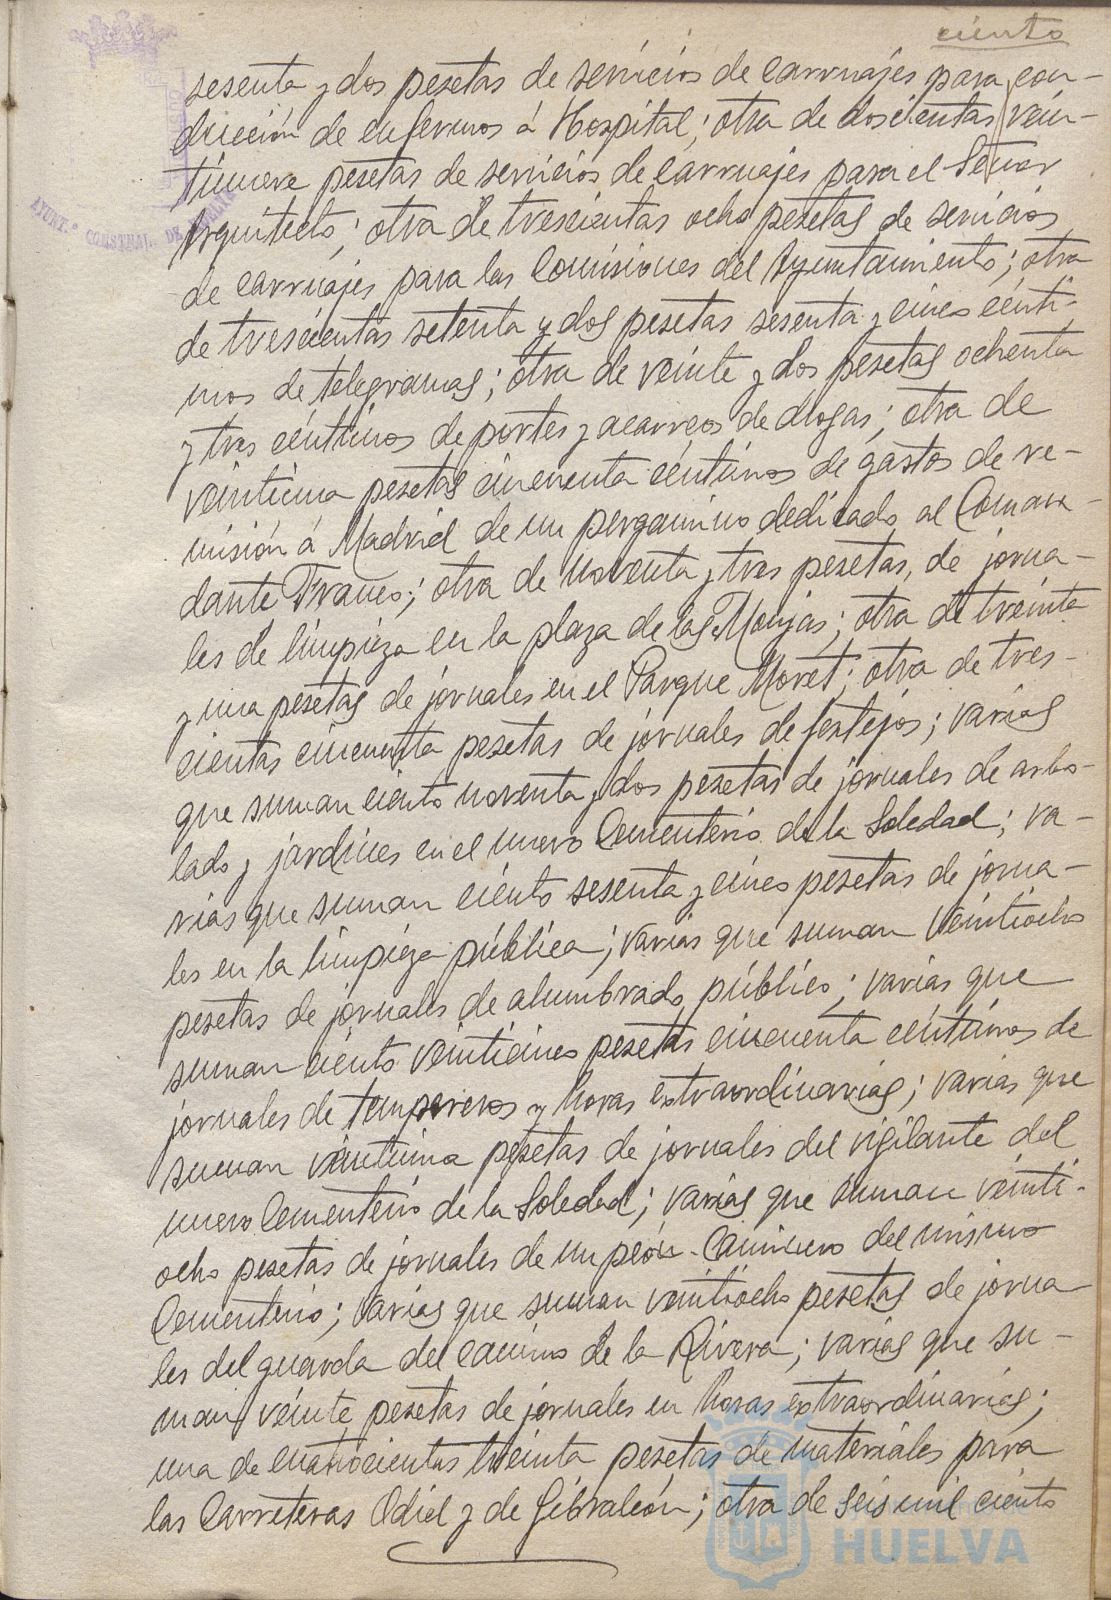 ciento
sesenta y dos pesetas de servicios de carruajes para con-
ducción de enfermos á Hospital; otra de doscientas vein-
tinueve pesetas de servicios de carruajes para el Señor
Arquitecto; otra de trescientas ocho pesetas de servicios
de carruajes para las Comisiones del Ayuntamiento; otra
de trescientas setenta y dos pesetas sesenta y cinco cénti-
mos de telegramas; otra de veinte y dos pesetas ochenta
y tres céntimos de portes y acarreos de drogas; otra de
veintiuna pesetas cincuenta céntimos de gastos de re-
misión á Madrid de un pergamino dedicado al Coman-
dante Franco; otra de noventa y tres pesetas, de jorna-
les de limpieza en la plaza de las Monjas; otra de treinta
y una pesetas de jornales en el Parque Moret; otra de tres-
cientas cincuenta pesetas de jornales de festejos; varias
que suman ciento noventa y dos pesetas de jornales de arbo-
lado y jardines en el nuevo Cementerio de la Soledad; va-
rias que suman ciento sesenta y cinco pesetas de jorna-
les en la limpieza pública; varias que suman veintiocho
pesetas de jornales de alumbrado público; varias que
suman ciento veinticinco pesetas cincuenta céntimos de
jornales de tempereros y horas extraordinarias; varias que
suman veintiuna pesetas de jornales del vigilante del
nuevo Cementerio de la Soledad; varias que suman veinti-
ocho pesetas de jornales de un peón-Caminero del mismo
Cementerio; varias que suman veintiocho pesetas de jorna-
les del guarda del camino de la Rivera; varias que su-
man veinte pesetas de jornales en horas extraordinarias;
una de cuatrocientas treinta pesetas de materiales para
las Carreteras Odiel y de Gibraleón; otra de seis mil ciento
AYUNT.º CONSTNAL. DE HUELVA
HUELVA